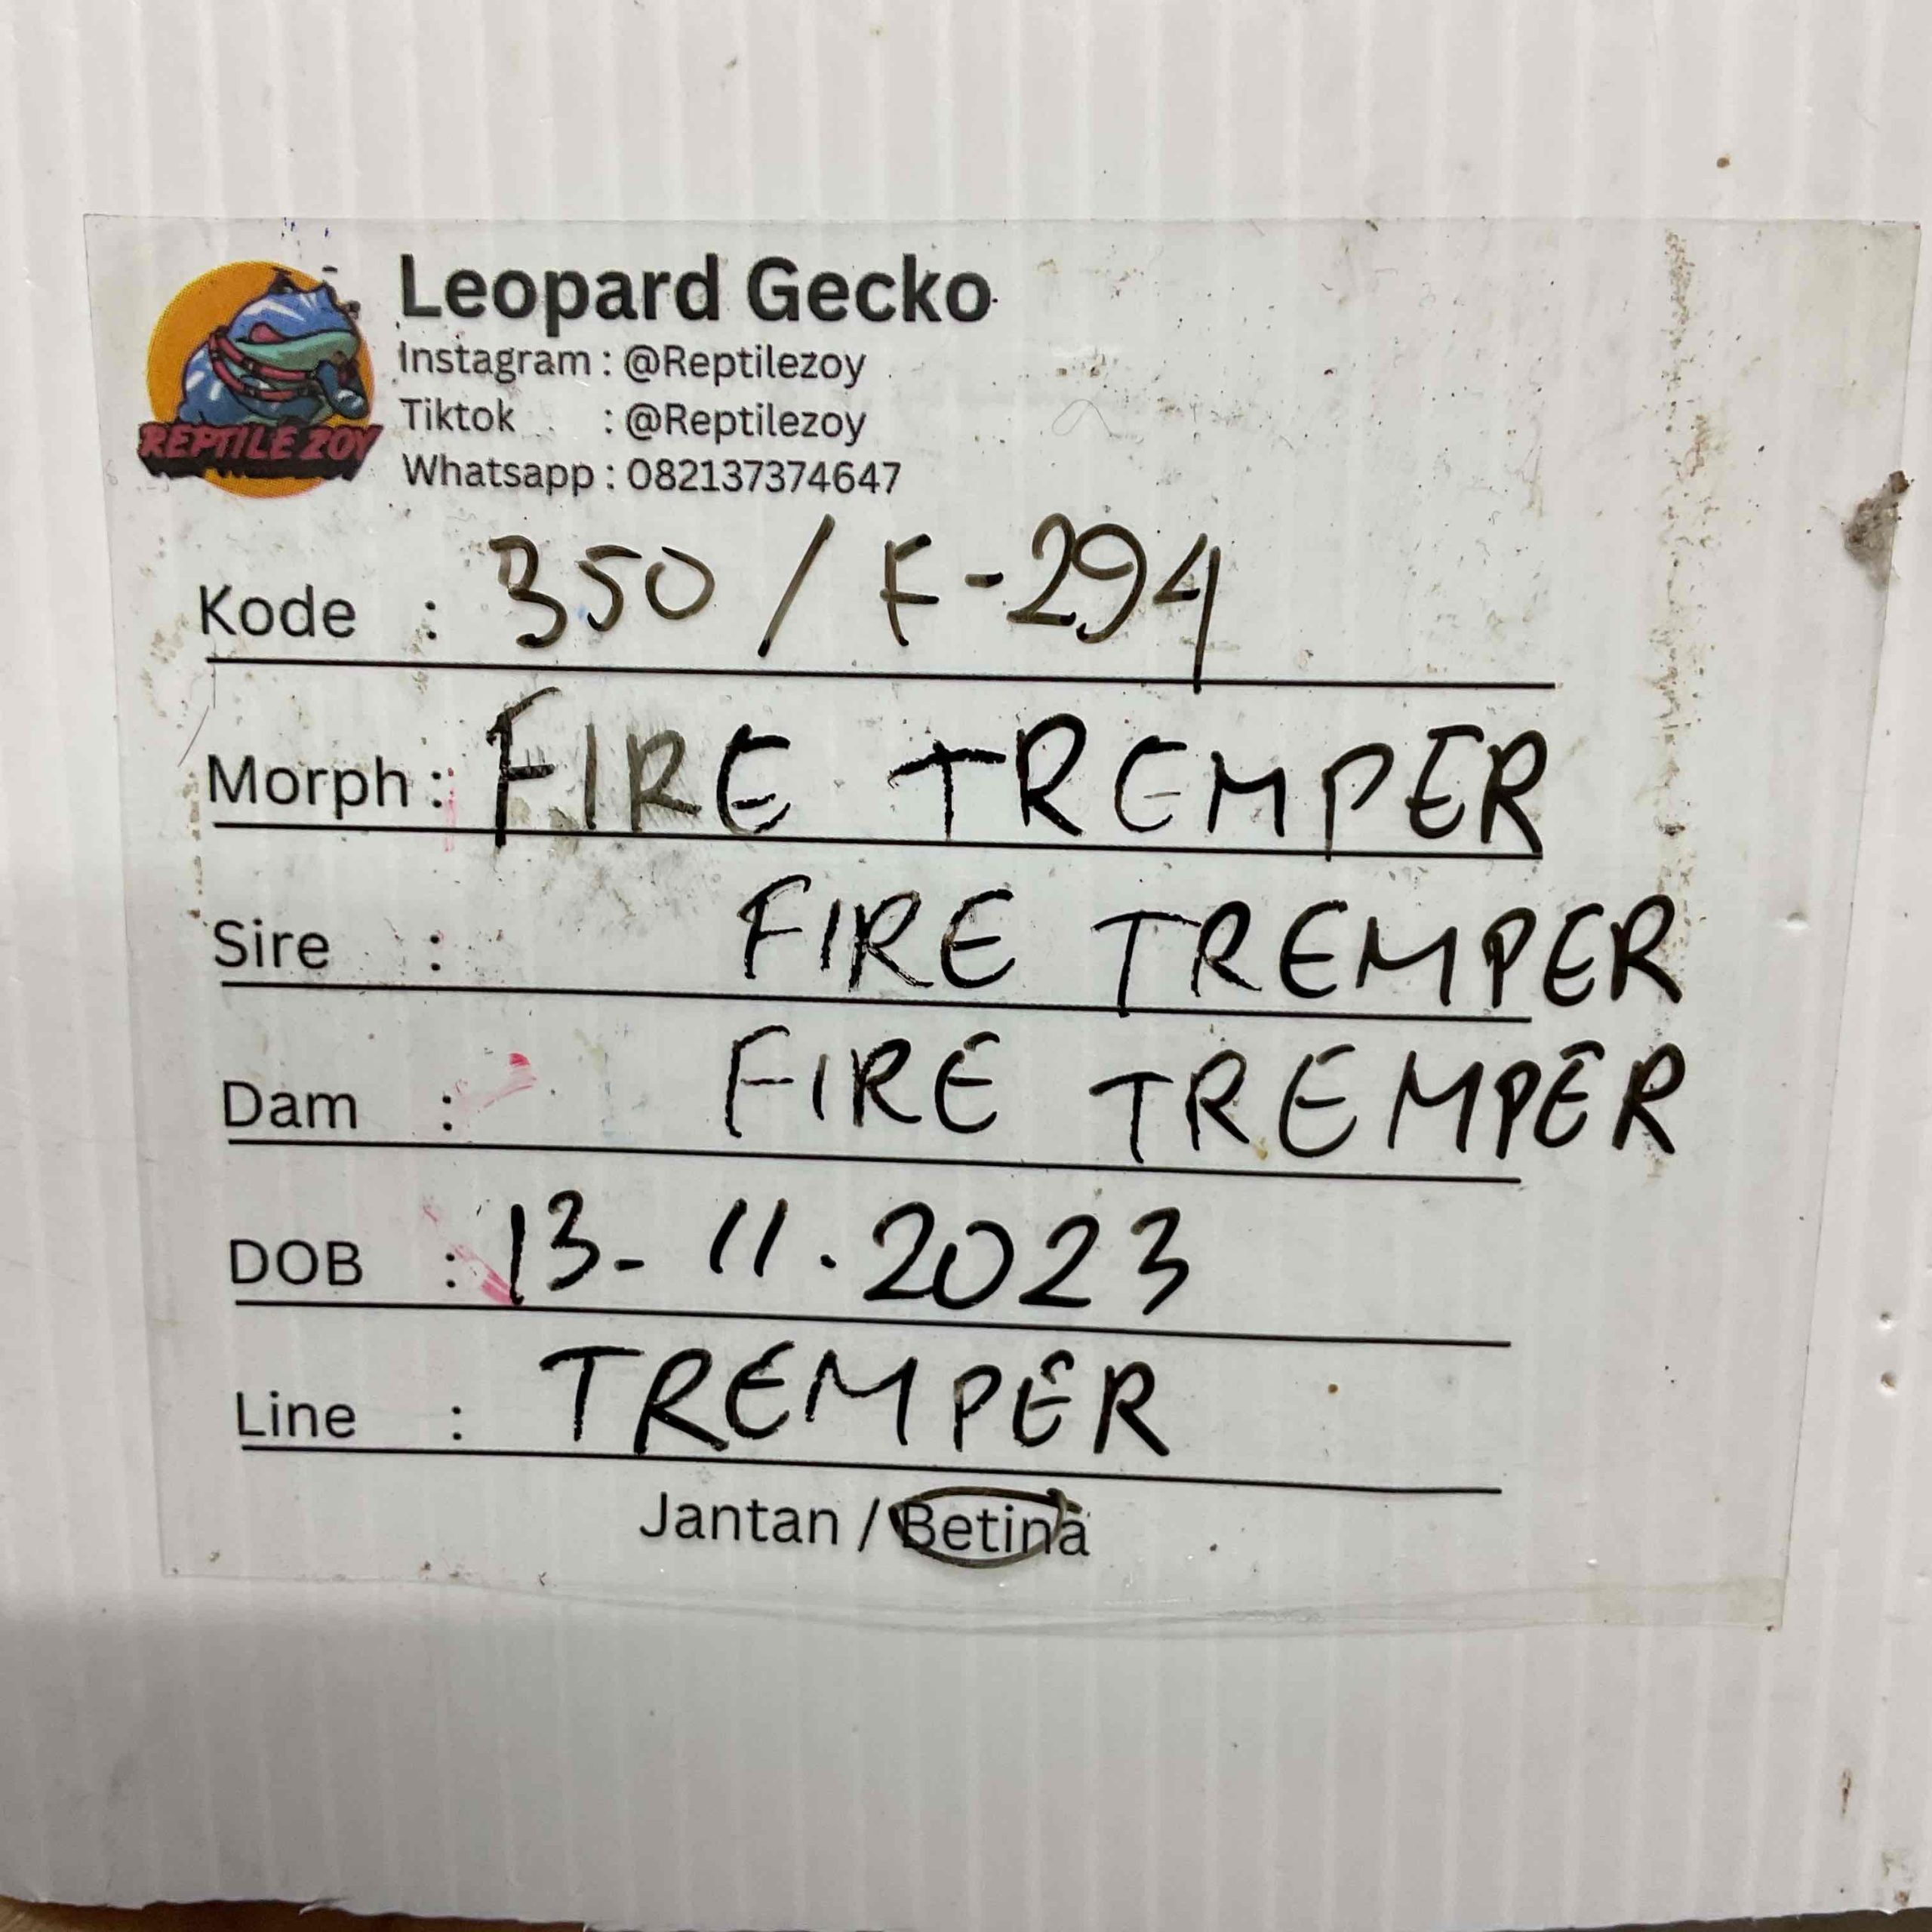 Leopard Gecko
Instagram : @Reptilezoy
Tiktok : @Reptilezoy
Whatsapp : 082137374647
REPTILE ZOY
Kode : 350 / F-294
Morph : FIRE TREMPER
Sire : FIRE TREMPER
Dam : FIRE TREMPER
DOB : 13-11.2023
Line : TREMPER
Jantan / Betina